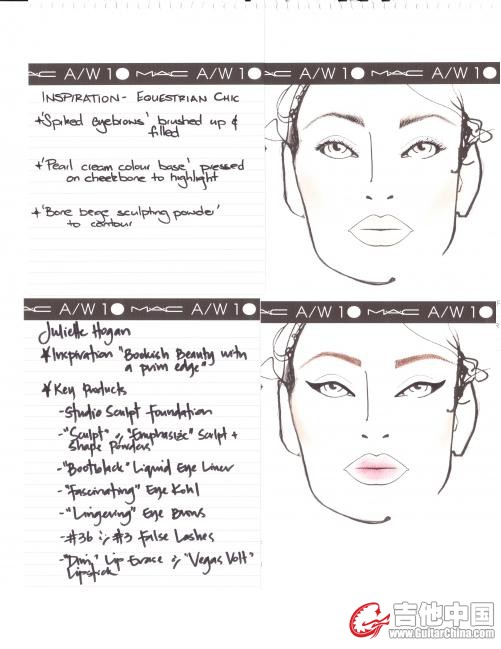 MAC A/W 10 MAC A/W 10 MAC A/W 10
INSPIRATION- EQUESTRIAN CHIC
+'Spiked eyebrows' brushed up &
filled
+'Pearl cream colour base' pressed
on cheekbone to highlight
+'Bone beige sculpting powder'
to contour
MAC A/W 10 MAC A/W 10 MAC A/W 10
Juliette Hogan
* Inspiration "Bookish Beauty with
a prim edge"
* Key Products
- Studio Sculpt Foundation
- "Sculpt" & "Emphasize" Sculpt +
Shape Powders
- "Bootblack" Liquid Eye Liner
- "Fascinating" Eye Kohl
- "Lingering" Eye Brows
- #36 & #3 False Lashes
- "Dim" Lip Erase & "Vegas Volt"
Lipstick
吉他中国
www.GuitarChina.com